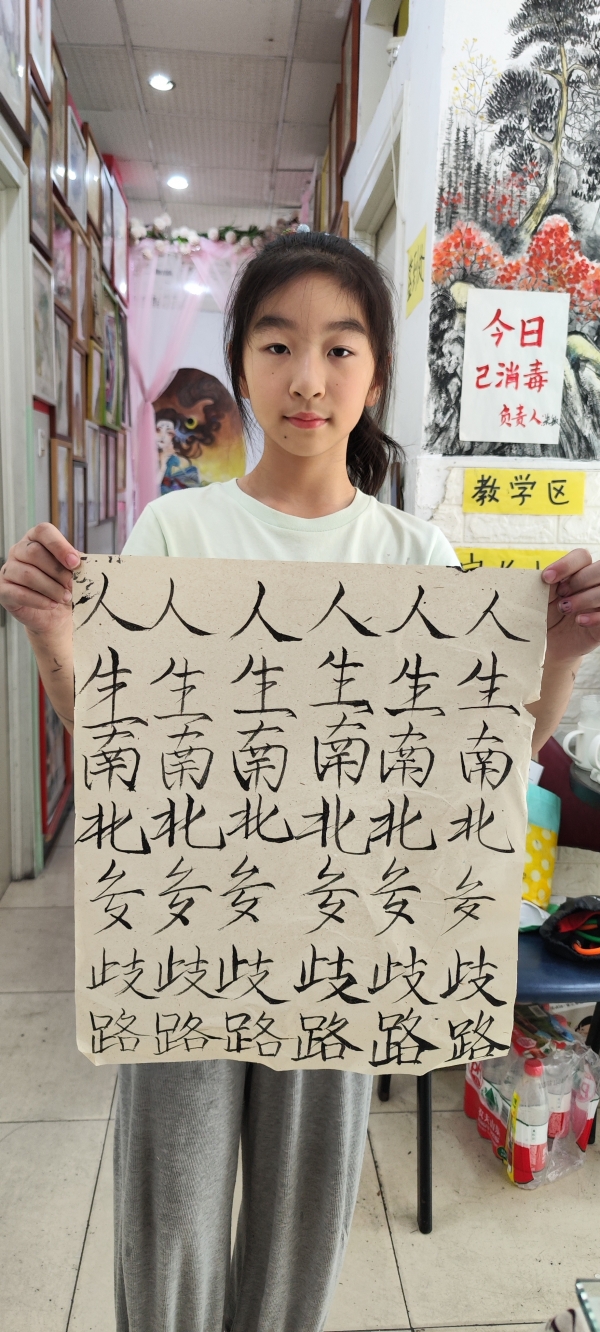 今日
已消毒
负责人
教学区
人人人人人人
生生生生生生
南南南南南南
北北北北北北
多多多多多多
歧歧歧歧歧歧
路路路路路路